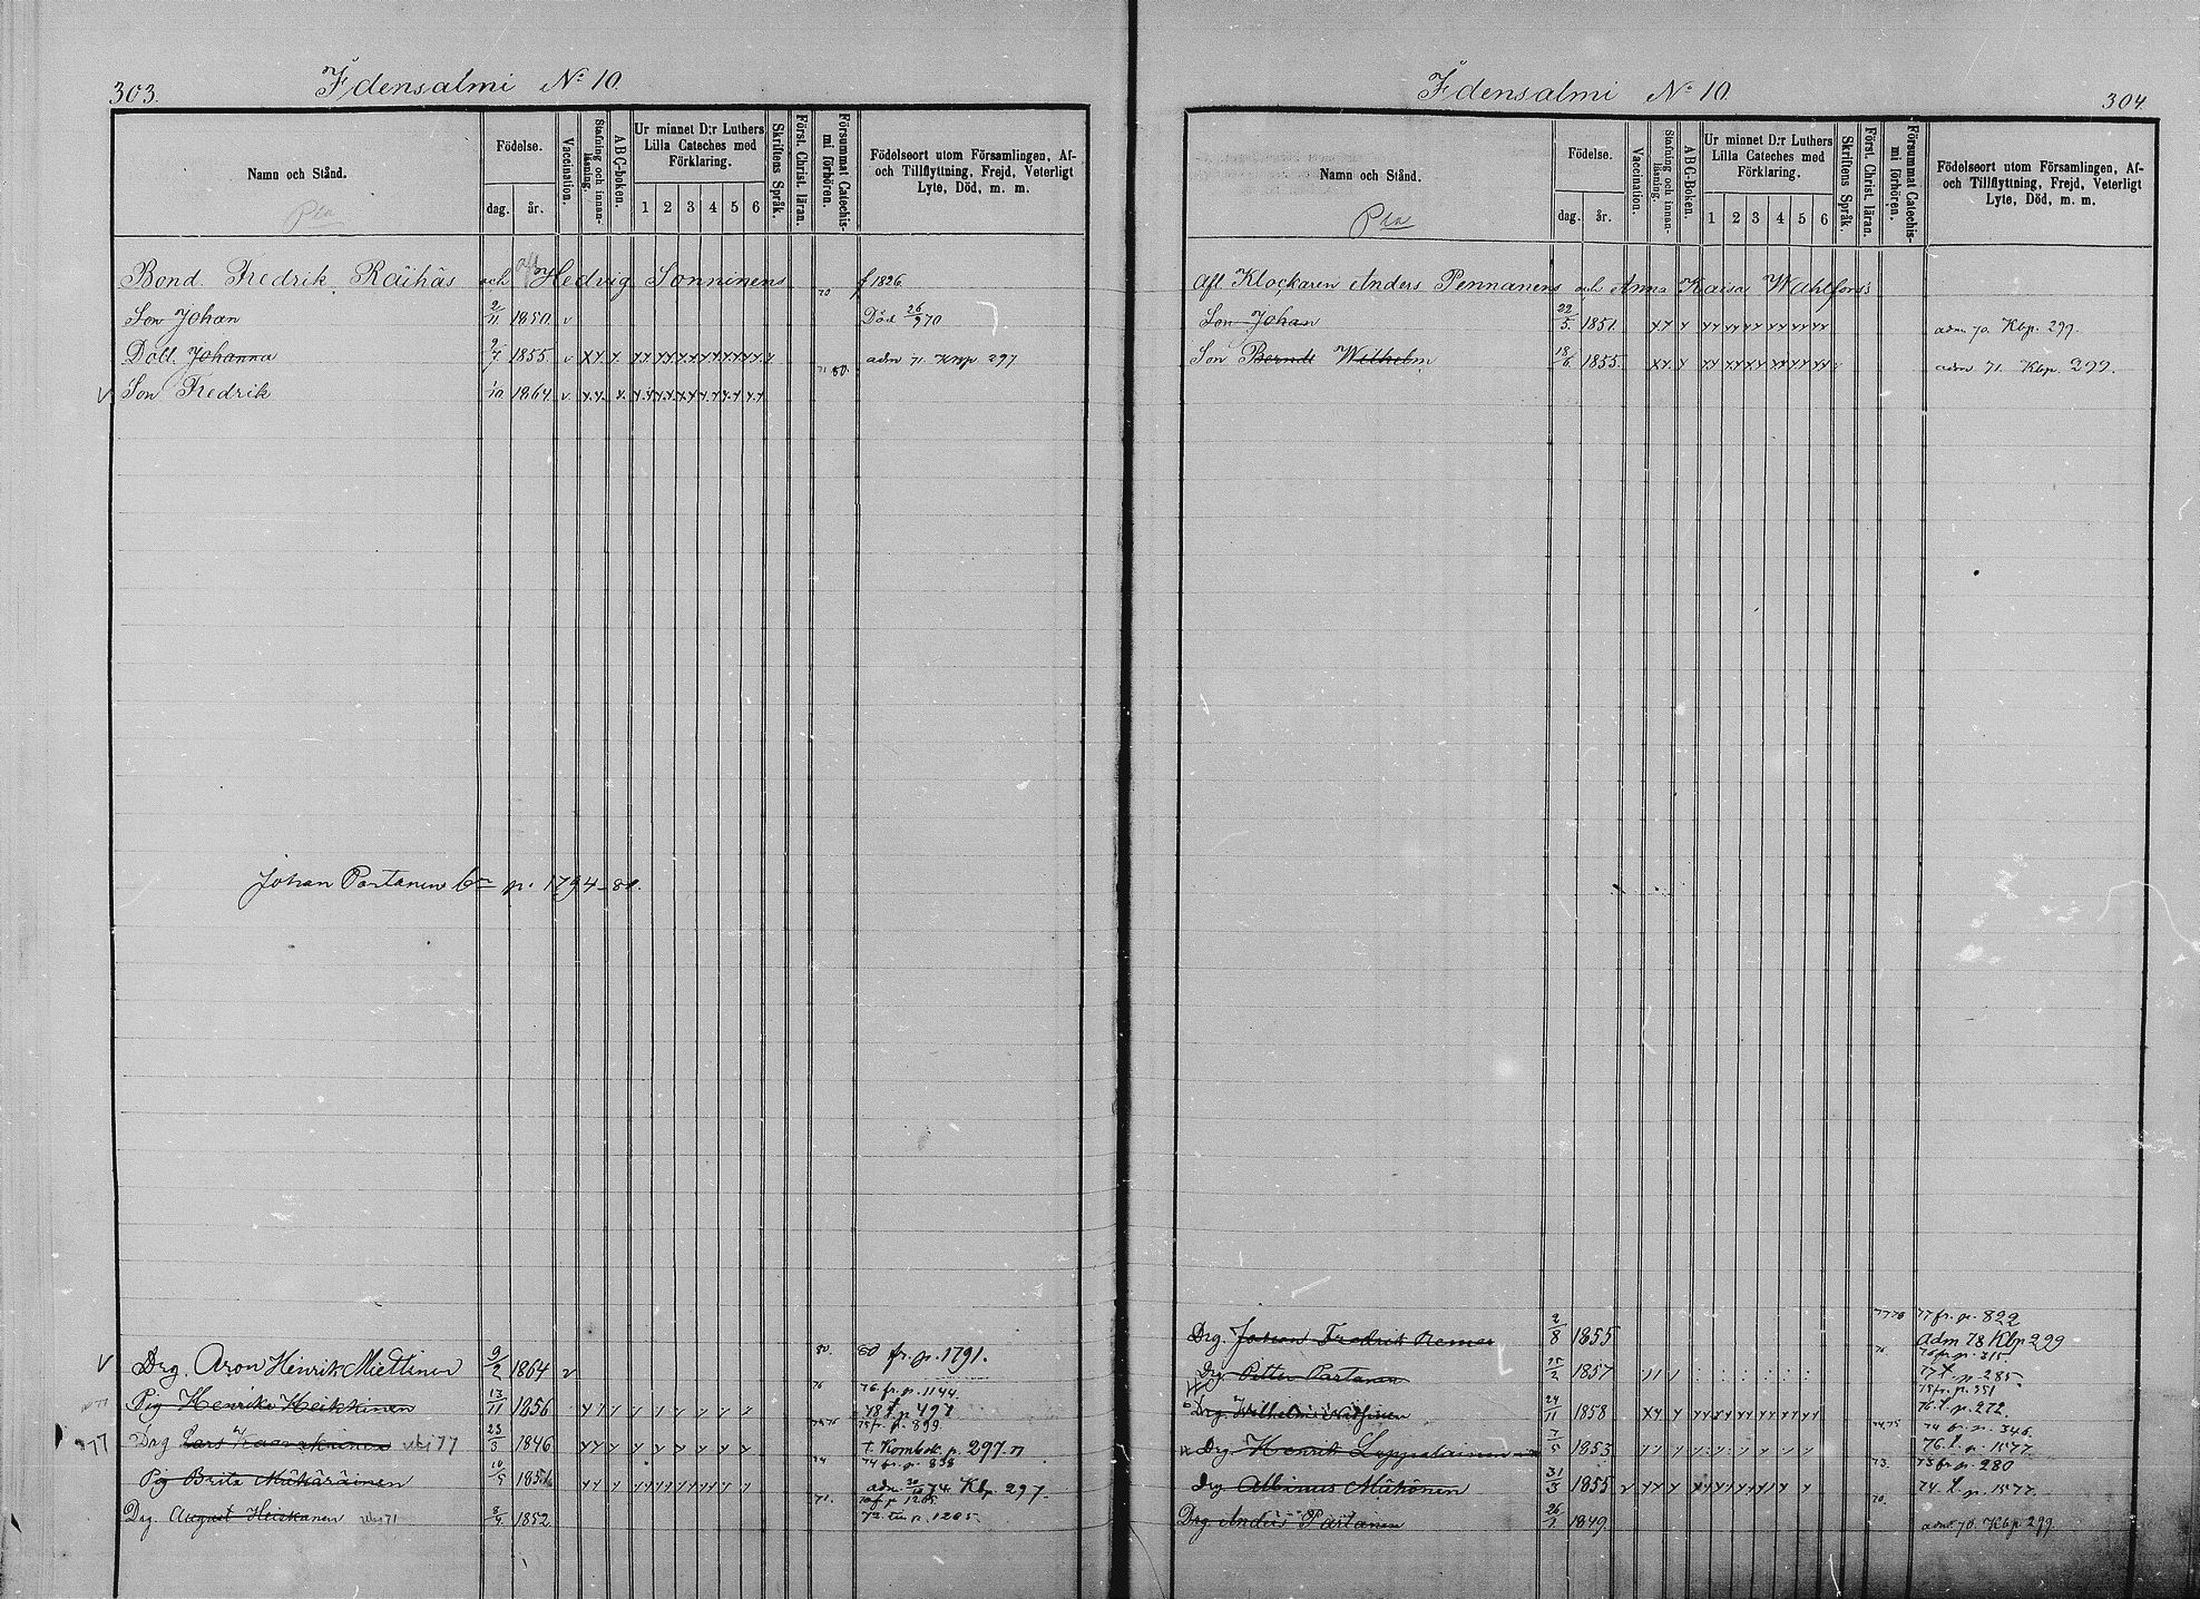 303.
Idensalmi No 10.
Namn och Stånd.
Födelse.
dag.
år.
Vaccination.
Stafning och innan-läsning.
A B C-boken.
Ur minnet D:r Luthers Lilla Cateches med Förklaring.
1 2 3 4 5 6
Skriftens Språk.
Först. Christ. läran.
Försummat Catechis-mi förhören.
Födelseort utom Församlingen, Af- och Tillflyttning, Frejd, Veterligt Lyte, Död, m. m.
Bond. Fredrik Räihäs och Hedvig Sonninens f 1826
Son Johan 2/11 1850 v Död 26/9 70
Dott. Johanna 9/7 1855. v adm 71. Kbp 297
Son Fredrik 1/10 1864 v
Johan Partanens bn p. 1794-80.
Drg. Aron Henrik Miettinen 9/2 1864 v 80. 80 fr. p. 1791.
Pig Henrika Heikkinen 13/11 1856 76 76. fr. p. 1144.
78 t p 497
Drg Lars 23/3 1846 75 fr. p. 899
t. Kombok p. 297
Pig Brita 10/5 74 74 fr. p. 838
adm. 74 Kbp. 297.
Drg. August Heiskanen 1852 71. 70 f. p 1205
72. till p. 1205.
Idensalmi No 10
304.
Namn och Stånd.
Födelse.
dag.
år.
Vaccination.
Stafning och innan-läsning.
A B C-Boken.
Ur minnet D:r Luthers Lilla Cateches med Förklaring.
1 2 3 4 5 6
Skriftens Språk.
Först. Christ. läran.
Försummat Catechis-mi förhören.
Födelseort utom Församlingen, Af- och Tillflyttning, Frejd, Veterligt Lyte, Död, m. m.
Afl Klockaren Anders Pennanens och Anna Kaisa Wahlfors's
Son Johan 22/5. 1851. adm. 70. Kbp. 299.
Son Berndt Wilhelm 18/6 1855. adm 71. Kbp. 299.
77 78 77 fr. p. 822
Drg. Johan Fredrik 2/8 1855 adm 78 Kbp 299
76 76 fr. p. 315.
Drg. Petter Partanen 1857 77 t. p. 285.
75 fr. p. 351
Drg. Wilhelm 24/11 1858 76. t. p. 272.
74 fr. p. 346.
Drg. Henrik Lappalainen 7/5 1853 76. t. p. 1577.
73. 73 fr. p. 280
Drg Albinus 31/3 1855 v 74. t. p. 1577.
70.
Drg. Anders Partanen 26/1 1849. adm. 70. Kbp 299.